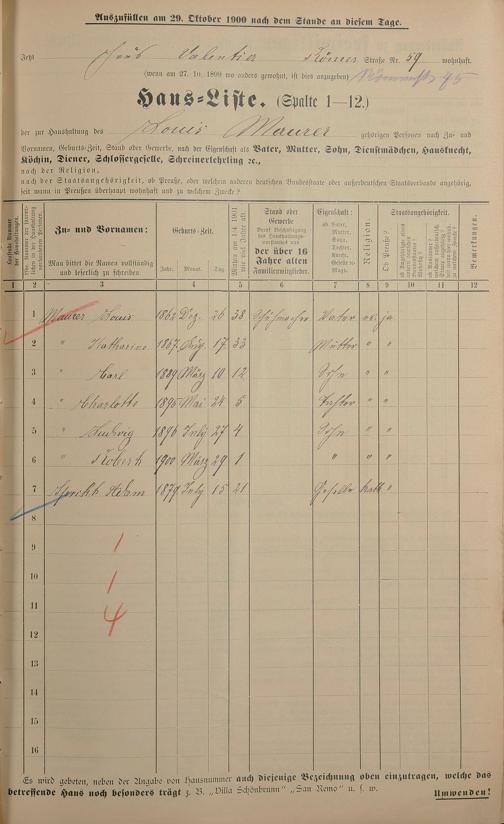 Auszufüllen am 29. Oktober 1900 nach dem Stande an diesem Tage.
Jetzt Valentin Römer Straße Nr. 59 wohnhaft.
(wenn am 27. 10. 1899 wo anders gewohnt, ist dies anzugeben)
Haus-Liste. (Spalte 1—12.)
der zur Haushaltung des Louis Maurer gehörigen Personen nach Zu- und
Vornamen, Geburts-Zeit, Stand oder Gewerbe, nach der Eigenschaft als Vater, Mutter, Sohn, Dienstmädchen, Hausknecht,
Köchin, Diener, Schlossergeselle, Schreinerlehrling ꝛc.,
nach der Religion,
nach der Staatsangehörigkeit, ob Preuße, oder welchem anderen deutschen Bundesstaate oder außerdeutschen Staatsverbande angehörig,
seit wann in Preußen überhaupt wohnhaft und zu welchem Zwecke?
Zu- und Vornamen:
Man bittet die Namen vollständig
und leserlich zu schreiben
Geburts-Zeit.
Jahr. Monat. Tag
Stand oder
Gewerbe
der über 16
Jahre alten
Familienmitglieder.
Eigenschaft:
ob Vater,
Mutter,
Sohn,
Tochter,
Religion.
Ob Preuße?
Staatsangehörigkeit.
Bemerkungen.
1 2 3 4 5 6 7 8 9 10 11 12
1 Maurer Louis 1862 Dez. 26 38 Schuhmacher Vater ev. ja
2 " Katharina 1867 Aug. 17 33 Mutter " "
3 " Karl 1889 März 10 12 Sohn " "
4 " Charlotte 1895 Mai 24 5 Tochter " "
5 " Ludwig 1896 July 27 4 Sohn " "
6 " Robert 1900 März 29 1 " " "
7 Adam 1879 July 15 21 Geselle kath. "
8
9 1
10 1
11 4
12
13
14
15
16
Es wird gebeten, neben der Angabe von Hausnummer auch diejenige Bezeichnung oben einzutragen, welche das
betreffende Haus noch besonders trägt z. B. „Villa Schönbrunn“ „San Remo“ u. s. w. Umwenden!